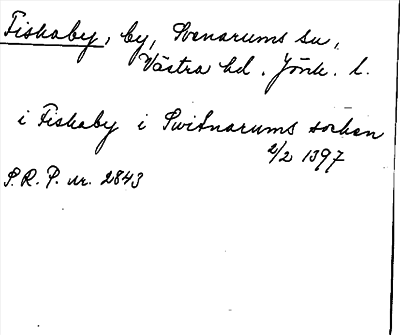 Fiskaby, by, Svenarums sn,
Västra hd. Jönk. l.
i Fiskaby i Switnarums sochen
2/2 1397
S.R.P. nr. 2843